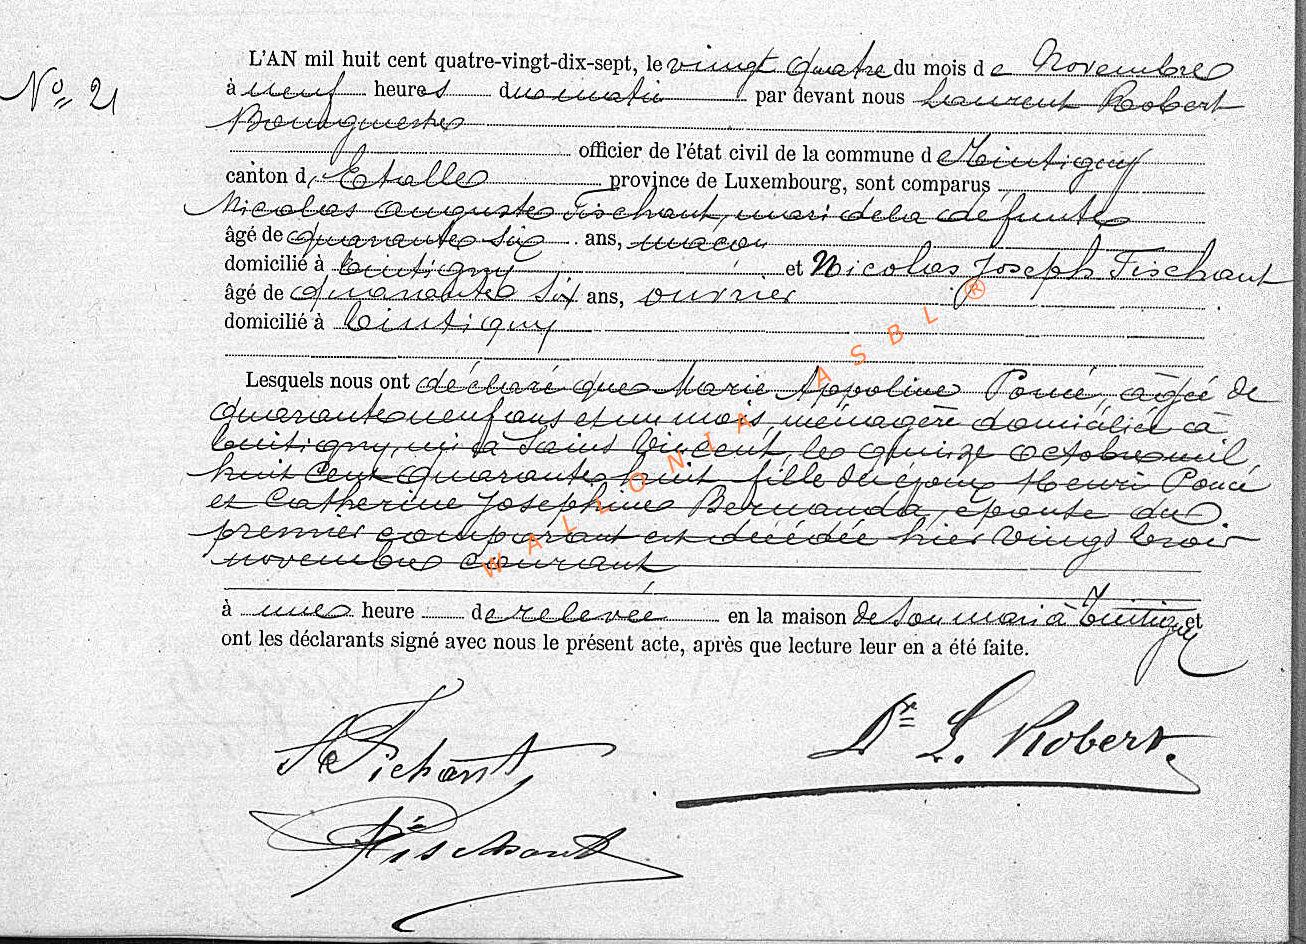 No 21
L'AN mil huit cent quatre-vingt-dix-sept, le vingt quatre du mois de Novembre
à neuf heures du matin par devant nous Laurent Robert
Bourgmestre
officier de l'état civil de la commune de Tintigny
canton d'Etalle province de Luxembourg, sont comparus
Nicolas Auguste Fischant, mari de la défunte
âgé de quarante six ans, maçon
domicilié à Tintigny et Nicolas Joseph Fischant
âgé de quarante six ans, ouvrier
domicilié à Tintigny
Lesquels nous ont déclaré que Marie Appoline Poncé, âgée de
quarante neuf ans et un mois, ménagère domiciliée à
Tintigny, née à Saint Vincent, le quinze octobre mil
huit cent quarante huit fille des époux Henri Poncé
et Catherine Joséphine Bernanda, épouse du
premier comparant est décédée hier vingt trois
novembre courant
à une heure de relevée en la maison de son mari à Tintigny et
ont les déclarants signé avec nous le présent acte, après que lecture leur en a été faite.
Fichant
Dr L. Robert.
Fischant
WALLONIA ASBL ®